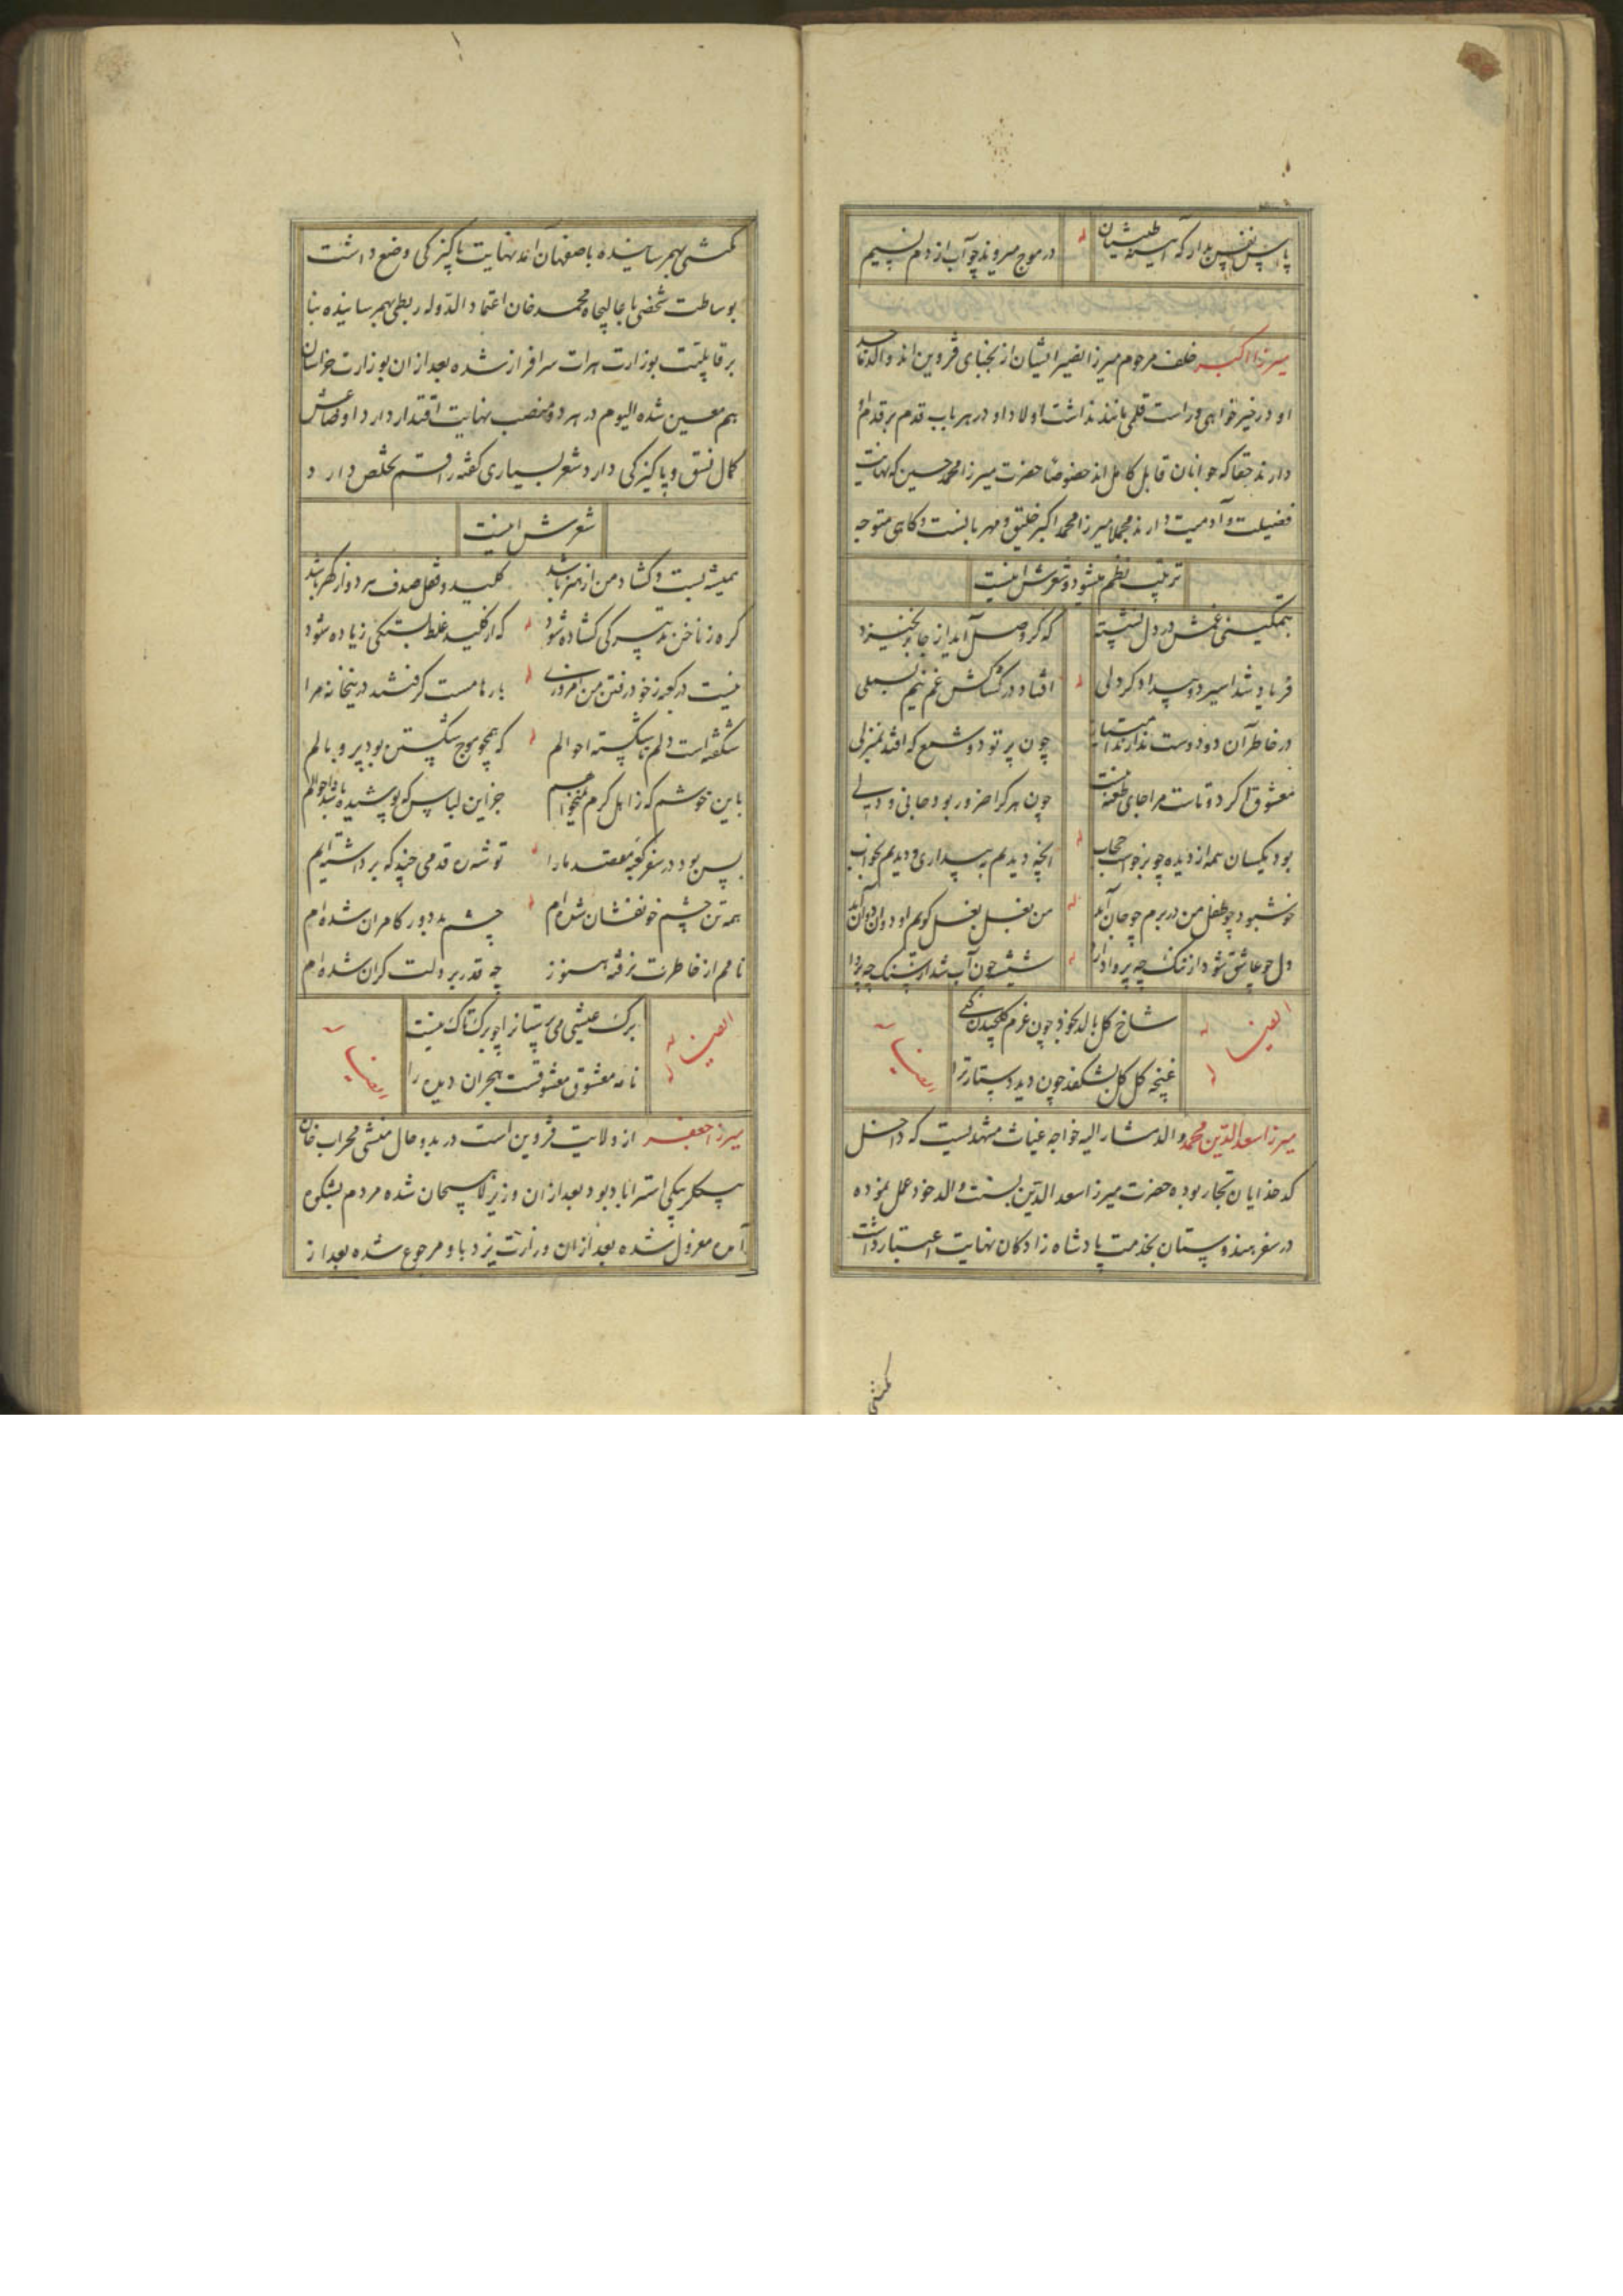 پاس نفس بدار که آیینه طینتان له در موج میروند چو آب از دم نسیم
میرزا اکبر خلف مرحوم میرزا نصیرا ایشان از نجبای قزوین اند والد ماجد
او در خیرخواهی و راست قلمی مانند نداشت اولاد او در هر باب قدم بر قدم او
دارند حقا که جوانان قابل کامل اند خصوصا حضرت میرزا محمد حسین که نهایت
فضیلت و آدمیت دارند مجملا میرزا محمد اکبر خلیق و مهربانست و گاهی متوجه
ترتیب نظم میشود و شعرش اینست
بتمکینی غمش در دل نشسته که گر وصل آید از جا برنخیزد
فرهاد شد اسیر دو بیدادگر دلی له افتاد در کشاکش غم نیم بسملی
در خاطر آن دو دوست ندارند امتیاز چون پرتو دو شمع که افتد بمنزلی
معشوق اگر دوتاست مرا جای طعنه نیست چون هر کرا ضرور بود جانی و دلی
بود یکسان همه از دیده چو برخواست حجاب له آنچه دیدیم به بیداری و دیدیم بخواب
خوشبو چو طفل من در برم چو جان آید له من بغل بغل گویم او دوان دوان آید
دل چو عاشق شود از ننگ چه پروا دارد له شیشه چون آب شد از سنگ چه پروا
ایضا له شاخ گل بالد بخود چون عزم گلچیدن کنی
له غنچه گل گل بشکفد چون دید دستار ترا ایضا
میرزا سعدالدین محمد والد مشار الیه خواجه غیاث مشهدیست که داخل
کدخدایان تجار بوده حضرت میرزا سعدالدین بسنت والد خود عمل نموده
در سفر هندوستان بخدمت پادشاه زادگان نهایت اعتبار داشت
مکنتی
مکنتی بهم رسانیده باصفهان آمد نهایت پاکیزگی وضع داشت
بوساطت شخصی با عالیجاه محمد خان اعتماد الدوله ربطی بهم رسانیده بنا
بر قابلیت بوزارت هرات سرافراز شده بعد از آن بوزارت خراسان
هم معین شده الیوم در هر دو منصب نهایت اقتدار دارد و اوضاعش
کمال نسق و پاکیزگی دارد شعر بسیاری گفته راقم تخلص دارد
شعرش اینست
همیشه بست و گشاد من از هنر باشد کلید و قفل صدف هر دو از گهر باشد
گره ز ناخن تدبیر کی گشاده شود له که از کلید غلط بستگی زیاده شود
نیست در کعبه ز خود رفتن من امروزی له بارها مست گرفتند درین خانه مرا
شکفته است دلم تا شکسته احوالم له که همچو موج شکستن بود پر و بالم
باین خوشم که ز اهل کرم نمیخواهم جز این لباس که پوشیده باشد احوالم
بس بود در سفر کعبه مقصد ما را له توشه‌ی قدمی چند که برداشته‌ایم
همه تن چشم خونفشان شده‌ام له چشم بد دور کامران شده‌ام
نامم از خاطرت نرفته هنوز چه قدر بر دلت گران شده‌ام
ایضا له برگ عیشی می پرستان را چو برگ تاک نیست
له نامه معشوق معشوقست هجران دیده را ایضا
میرزا جعفر از ولایت قزوین است در بدو حال منشی محراب خان
بیگلربیگی استراباد بود بعد از آن وزیر لاهیجان شده مردم بشکوه
آمده معزول شده بعد از آن وزارت یزد باو مرجوع شده بعد از